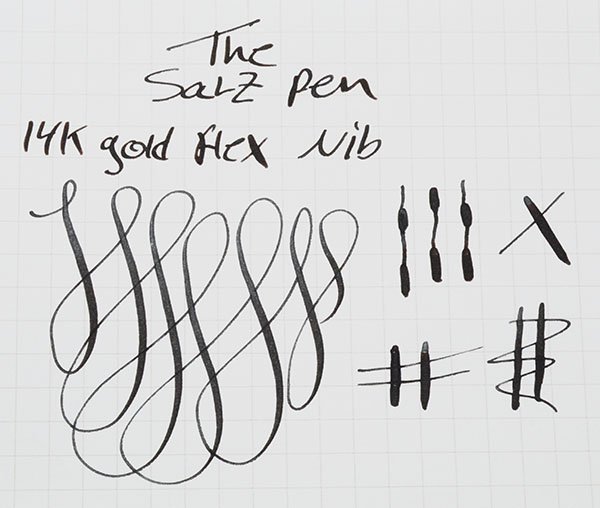 The
Salz pen
14K gold flex Nib